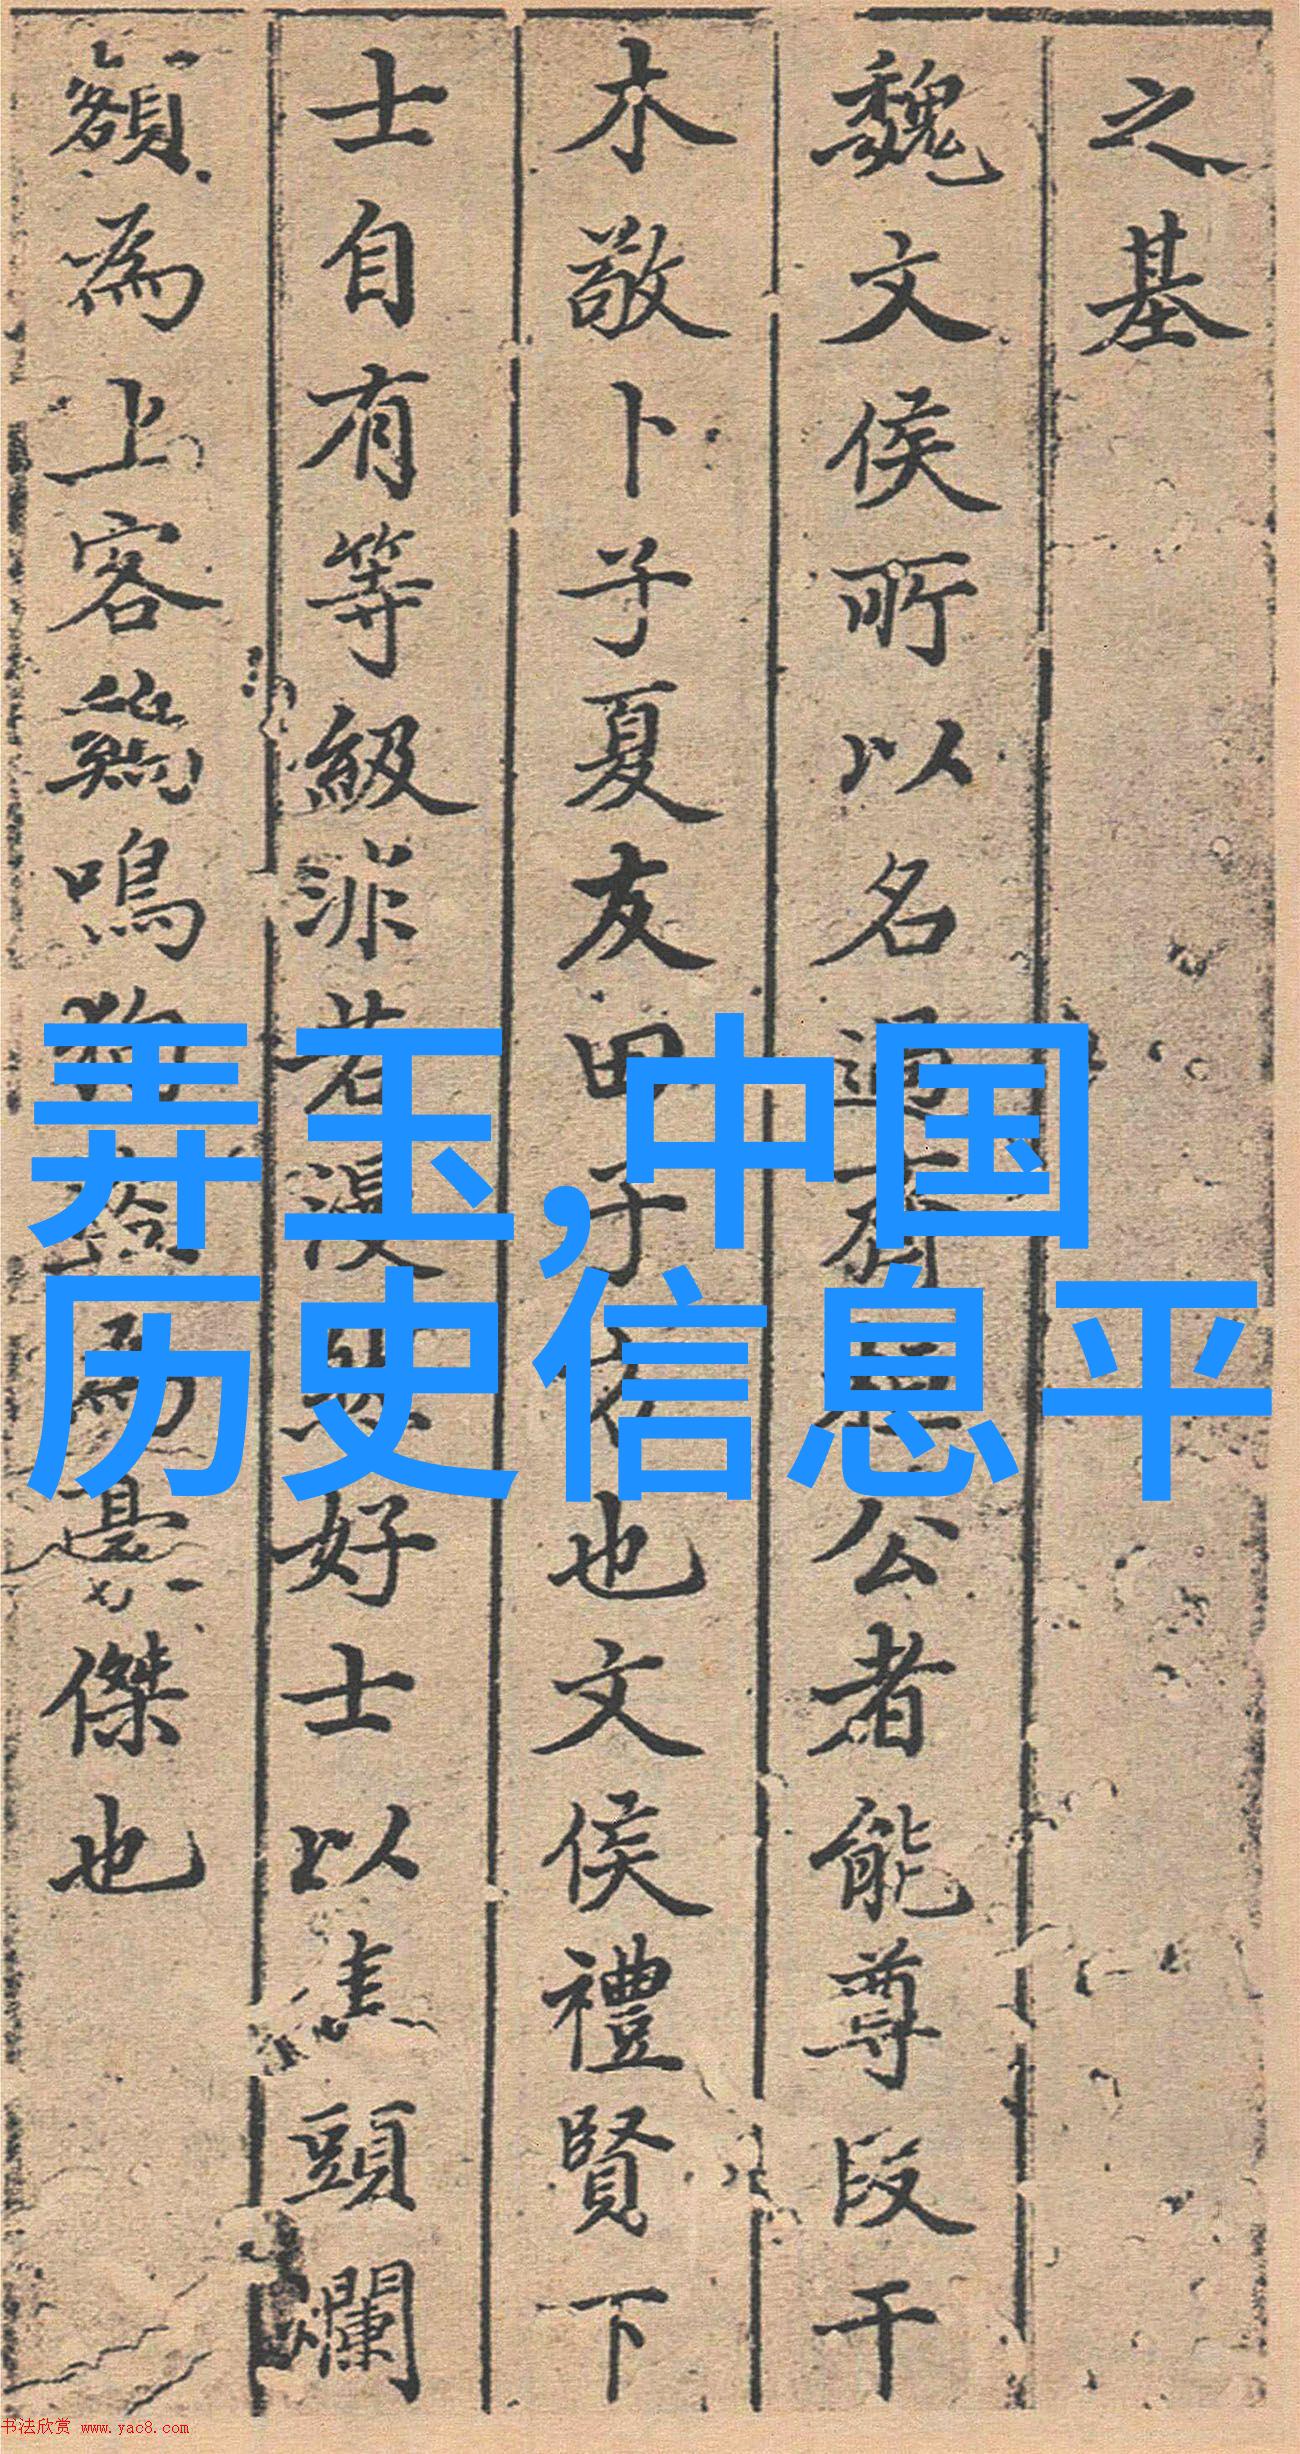 之基
魏文侯所以名過齊桓公者能尊段干
木敬卜子夏友田子方也文侯禮賢下
士自有等級非若漫然好士以焦頭爛
額為上客雞鳴狗盜為豪傑也
弄玉,中国
历史信息平
书法欣赏 www.yac8.com